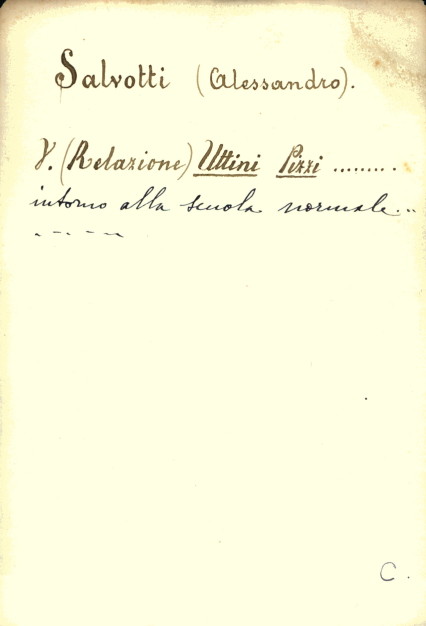 Salvotti (Alessandro).
V. (Relazione) Uttini Pizzi .........
intorno alla scuola normale...
- - - - -
C.